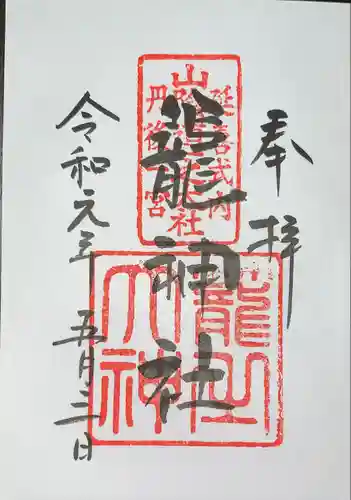 奉拝
延喜式内
丹後一宮
籠神社
籠之
大神
令和元年 五月三日